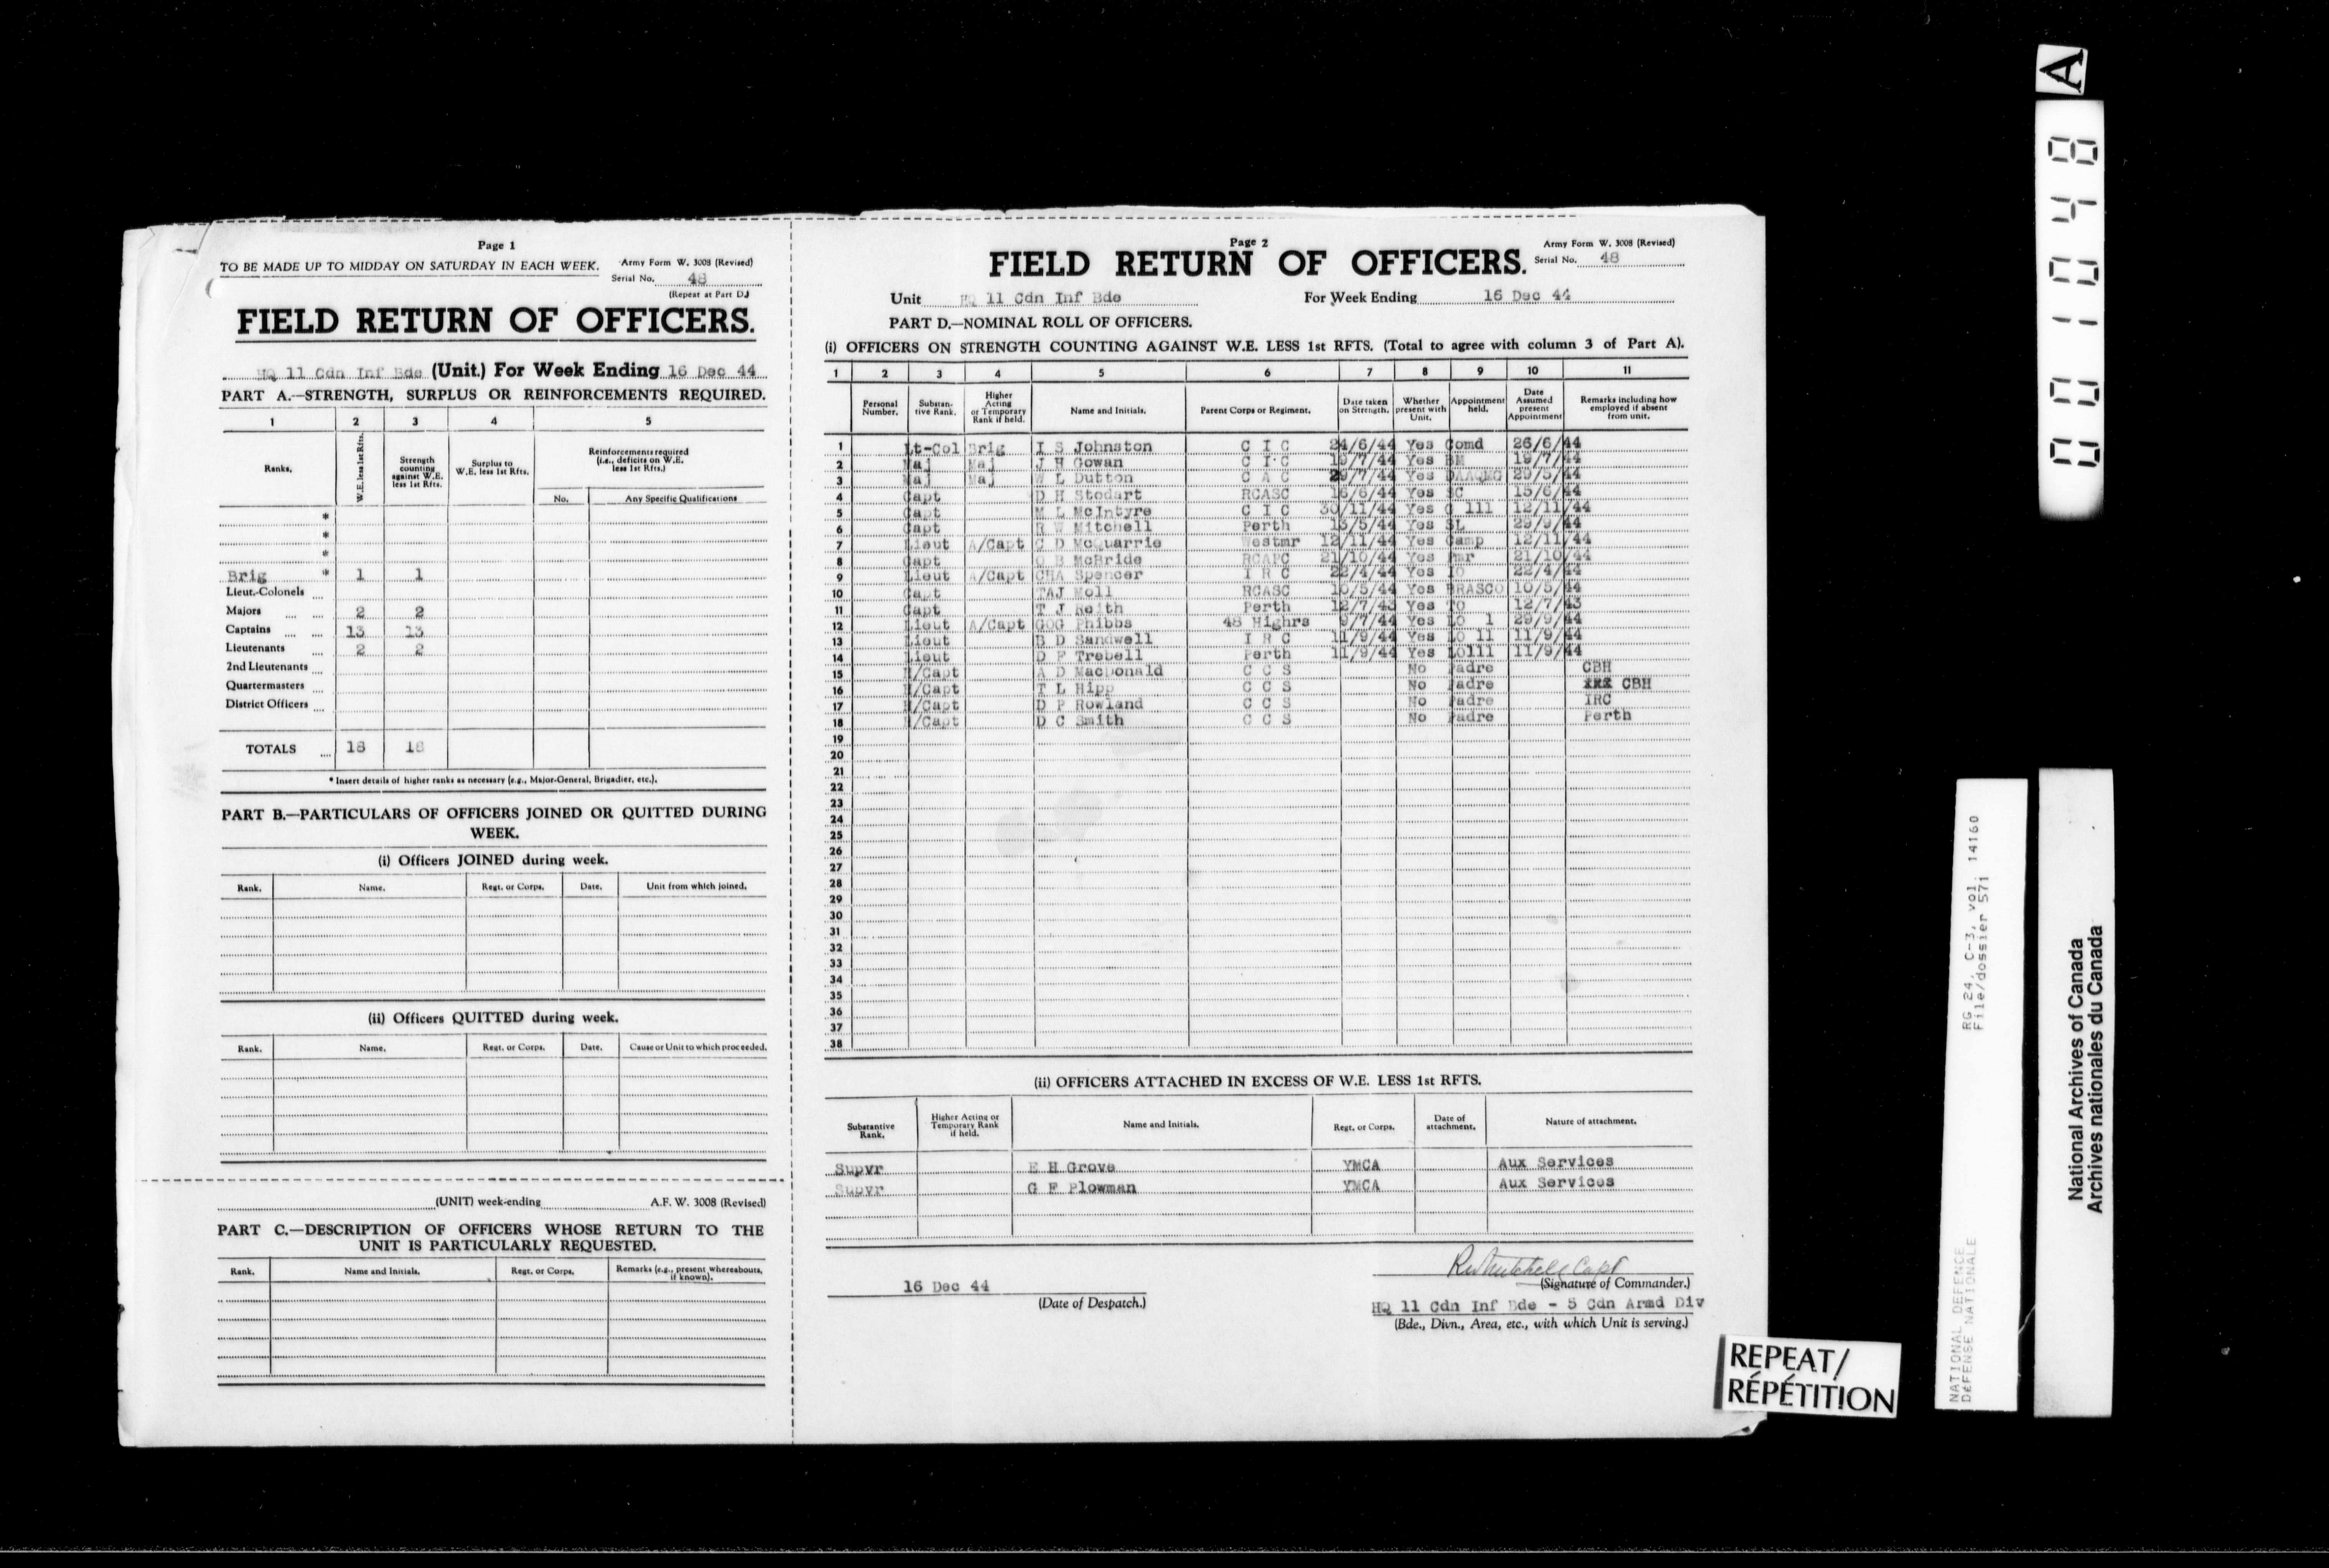 Page 1
TO BE MADE UP TO MIDDAY ON SATURDAY IN EACH WEEK. Army Form W. 3008 (Revised)
Serial No. 48
(Repeat at Part D.)
FIELD RETURN OF OFFICERS.
HQ 11 Cdn Inf Bde (Unit.) For Week Ending 16 Dec 44
PART A.—STRENGTH, SURPLUS OR REINFORCEMENTS REQUIRED.
1 2 3 4 5
Ranks. W.E. less 1st Rfts. Strength counting against W.E. less 1st Rfts. Surplus to W.E. less 1st Rfts. Reinforcements required (i.e., deficits on W.E. less 1st Rfts.)
No. Any Specific Qualifications
*
*
*
Brig * 1 1
Lieut.-Colonels ....
Majors .... .... 2 2
Captains .... .... 13 13
Lieutenants .... 2 2
2nd Lieutenants ....
Quartermasters ....
District Officers ....
TOTALS .... 18 18
* Insert details of higher ranks as necessary (e.g., Major-General, Brigadier, etc.).
PART B.—PARTICULARS OF OFFICERS JOINED OR QUITTED DURING
WEEK.
(i) Officers JOINED during week.
Rank. Name. Regt. or Corps. Date. Unit from which joined.
(ii) Officers QUITTED during week.
Rank. Name. Regt. or Corps. Date. Cause or Unit to which proceeded.
(UNIT) week-ending A.F. W. 3008 (Revised)
PART C.—DESCRIPTION OF OFFICERS WHOSE RETURN TO THE
UNIT IS PARTICULARLY REQUESTED.
Rank. Name and Initials. Regt. or Corps. Remarks (e.g., present whereabouts, if known).
Page 2
Army Form W. 3008 (Revised)
FIELD RETURN OF OFFICERS. Serial No. 48
Unit HQ 11 Cdn Inf Bde For Week Ending 16 Dec 44
PART D.—NOMINAL ROLL OF OFFICERS.
(i) OFFICERS ON STRENGTH COUNTING AGAINST W.E. LESS 1st RFTS. (Total to agree with column 3 of Part A).
1 2 3 4 5 6 7 8 9 10 11
Personal Number. Substantive Rank. Higher Acting or Temporary Rank if held. Name and Initials. Parent Corps or Regiment. Date taken on Strength. Whether present with Unit. Appointment held. Date Assumed present Appointment Remarks including how employed if absent from unit.
1 Lt-Col Brig I S Johnston C I C 24/6/44 Yes Comd 26/6/44
2 Maj Maj J H Gowan C I C /7/44 Yes BM 19/7/44
3 Maj Maj W L Dutton C A C /7/44 Yes DAAQMG 29/5/44
4 Capt D H Stodart RCASC 16/6/44 Yes SC 15/6/44
5 Capt M L McIntyre C I C 30/11/44 Yes G 111 12/11/44
6 Capt R W Mitchell Perth 13/5/44 Yes SL 29/9/44
7 Lieut A/Capt C D McQuarrie Westmr 12/11/44 Yes Camp 12/11/44
8 Capt O B McBride RCAPC 21/10/44 Yes Pmr 21/10/44
9 Lieut A/Capt CHA Spencer I R C 22/4/44 Yes IO 22/4/44
10 Capt TAJ Moll RCASC 10/5/44 Yes BRASCO 10/5/44
11 Capt T J Keith Perth 12/7/43 Yes TO 12/7/43
12 Lieut A/Capt GOG Phibbs 48 Highrs 9/7/44 Yes LO 1 29/9/44
13 Lieut B D Sandwell I R C 11/9/44 Yes LO 11 11/9/44
14 Lieut D F Trebell Perth 11/9/44 Yes LO111 11/9/44
15 H/Capt A D MacDonald C C S No Padre CBH
16 H/Capt T L Hipp C C S No Padre CBH
17 H/Capt D P Rowland C C S No Padre IRC
18 H/Capt D C Smith C C S No Padre Perth
19
20
21
22
23
24
25
26
27
28
29
30
31
32
33
34
35
36
37
38
(ii) OFFICERS ATTACHED IN EXCESS OF W.E. LESS 1st RFTS.
Substantive Rank. Higher Acting or Temporary Rank if held. Name and Initials. Regt. or Corps. Date of attachment. Nature of attachment.
Supvr E H Grove YMCA Aux Services
Supvr G F Plowman YMCA Aux Services
RW Mitchell Capt
16 Dec 44 (Signature of Commander.)
(Date of Despatch.) HQ 11 Cdn Inf Bde - 5 Cdn Armd Div
(Bde., Divn., Area, etc., with which Unit is serving.)
REPEAT/
RÉPÉTITION
A
001048
RG 24, C-3, vol. 14160
File/dossier 571
NATIONAL DEFENCE
DÉFENSE NATIONALE
National Archives of Canada
Archives nationales du Canada